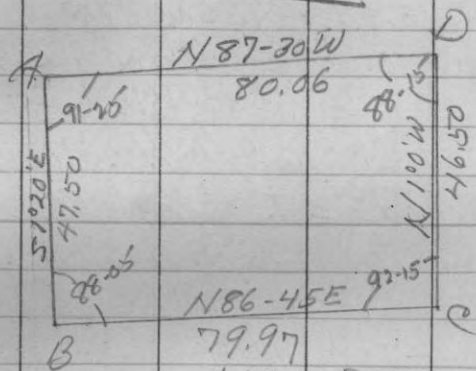 D
N 87-30 W
A
80.06
91-20'
88-15'
S 1°20' E
47.50
N 1°0' W
46.50
88-05'
92-15'
N86-45E
C
B
79.97